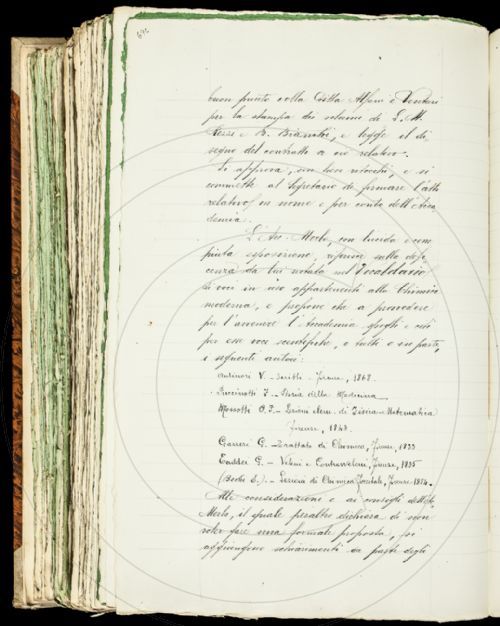 buon punto colla Ditta Alfani e Venturi
per la stampa del volume di L. M.
Rezzi e B. Bianchi, e legge il di-
segno del contratto a ciò relativo.
Si approva, con lievi ritocchi, e si
commette al Segretario di firmare l'atto
relativo in nome e per conto dell'Acca-
demia.
L'Acc. Merlo, con lucida e com-
piuta esposizione, riferisce sulla defi-
cenza da lui notata nel Vocabolario
di voci in uso appartenenti alla Chimica
moderna, e propone che a provvedere
per l'avvenire l'Accademia spogli e citi
per esse voci scientifiche, o tutti o in parte,
i seguenti autori:
Antinori V. - Scritti. Firenze, 1868.
Puccinotti F. - Storia della Medicina.
Mossotti O. F. - Lezioni elem. di Fisica-Matematica
Firenze, 1843.
Gazzeri G. - Trattato di Chimica, Firenze, 1833
Taddei G. - Veleni e Contravveleni, Firenze, 1835
(Bechi E.). - Lezioni di Chimica, Firenze, 1874.
Alle considerazioni e ai consigli dell'Acc.
Merlo, il quale peraltro dichiara di non
voler fare una formale proposta, si
aggiungono schiarimenti da parte degli